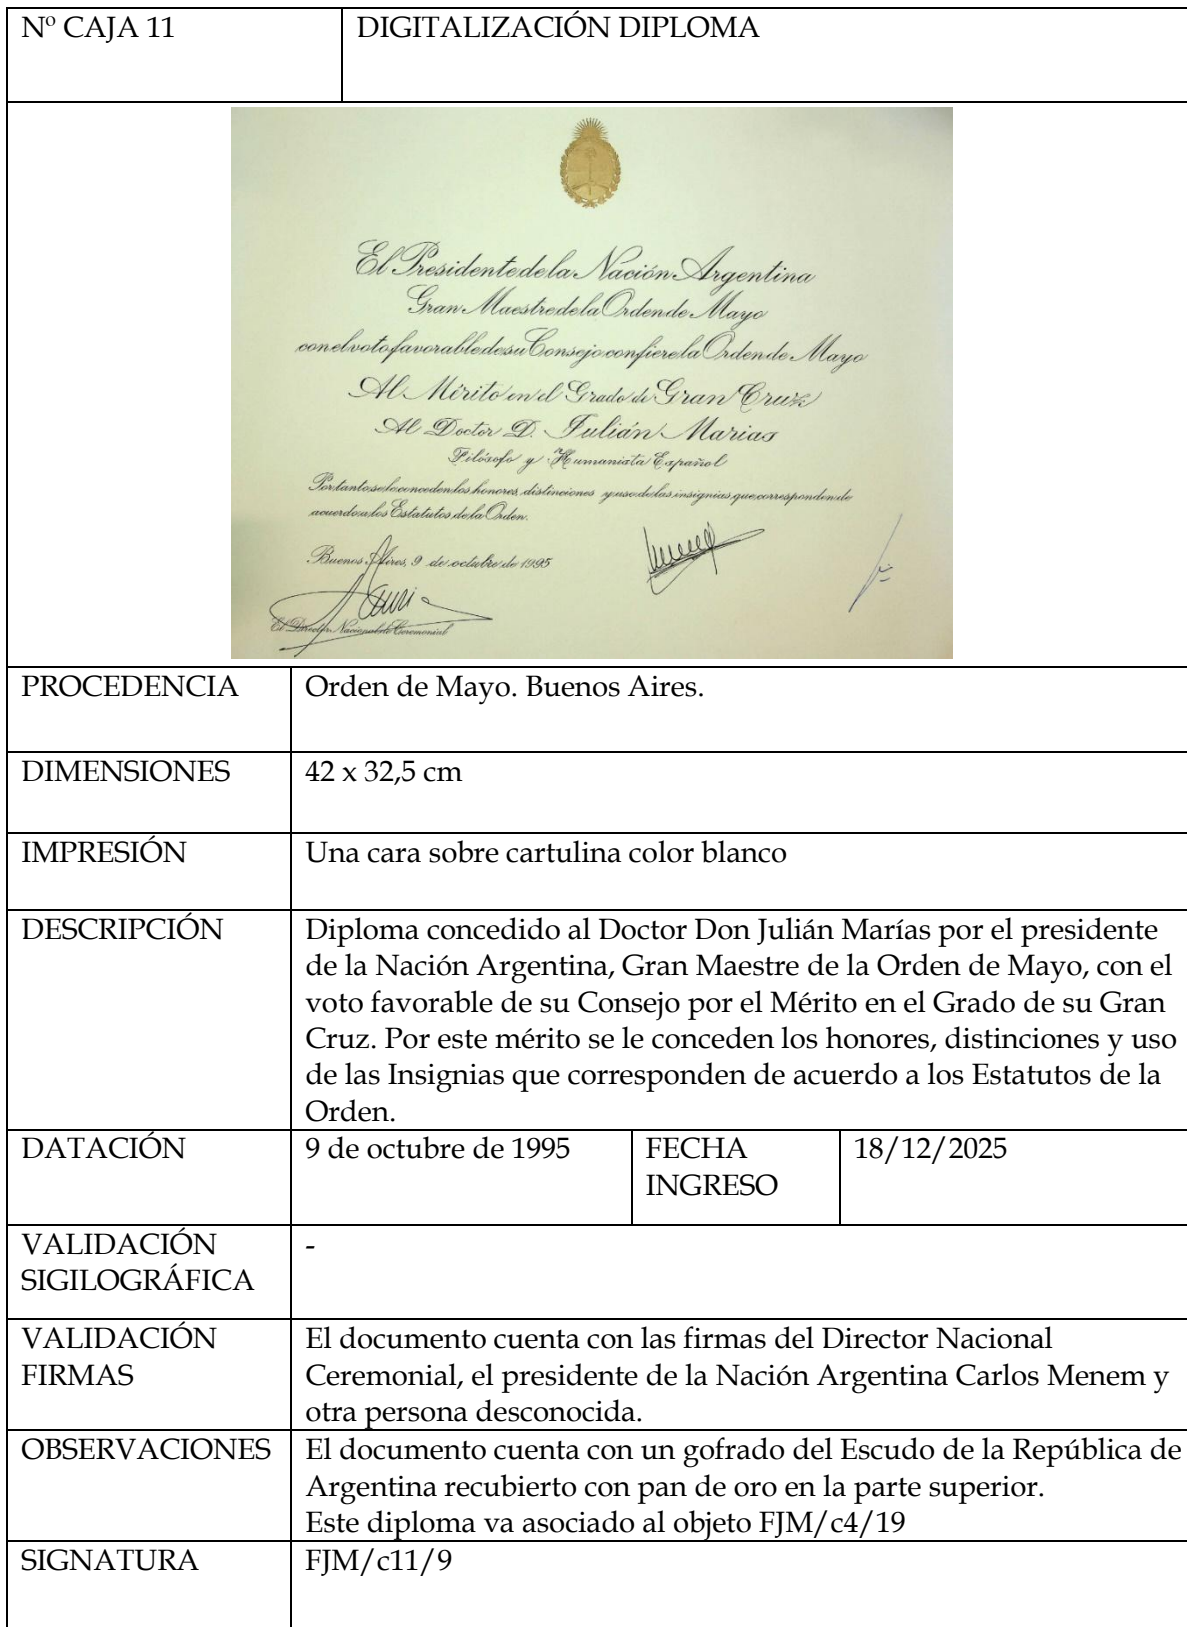 Nº CAJA 11
DIGITALIZACIÓN DIPLOMA
El Presidente de la Nación Argentina
Gran Maestre de la Orden de Mayo
con el voto favorable de su Consejo confiere la Orden de Mayo
Al Mérito en el Grado de Gran Cruz
Al Doctor D. Julián Marias
Filósofo y Humanista Español
Por tanto se le conceden los honores, distinciones y uso de las insignias que corresponden de
acuerdo a los Estatutos de la Orden.
Buenos Aires, 9 de octubre de 1995
El Director Nacional de Ceremonial
PROCEDENCIA
Orden de Mayo. Buenos Aires.
DIMENSIONES
42 x 32,5 cm
IMPRESIÓN
Una cara sobre cartulina color blanco
DESCRIPCIÓN
Diploma concedido al Doctor Don Julián Marías por el presidente
de la Nación Argentina, Gran Maestre de la Orden de Mayo, con el
voto favorable de su Consejo por el Mérito en el Grado de su Gran
Cruz. Por este mérito se le conceden los honores, distinciones y uso
de las Insignias que corresponden de acuerdo a los Estatutos de la
Orden.
DATACIÓN
9 de octubre de 1995
FECHA
INGRESO
18/12/2025
VALIDACIÓN
SIGILOGRÁFICA
-
VALIDACIÓN
FIRMAS
El documento cuenta con las firmas del Director Nacional
Ceremonial, el presidente de la Nación Argentina Carlos Menem y
otra persona desconocida.
OBSERVACIONES
El documento cuenta con un gofrado del Escudo de la República de
Argentina recubierto con pan de oro en la parte superior.
Este diploma va asociado al objeto FJM/c4/19
SIGNATURA
FJM/c11/9